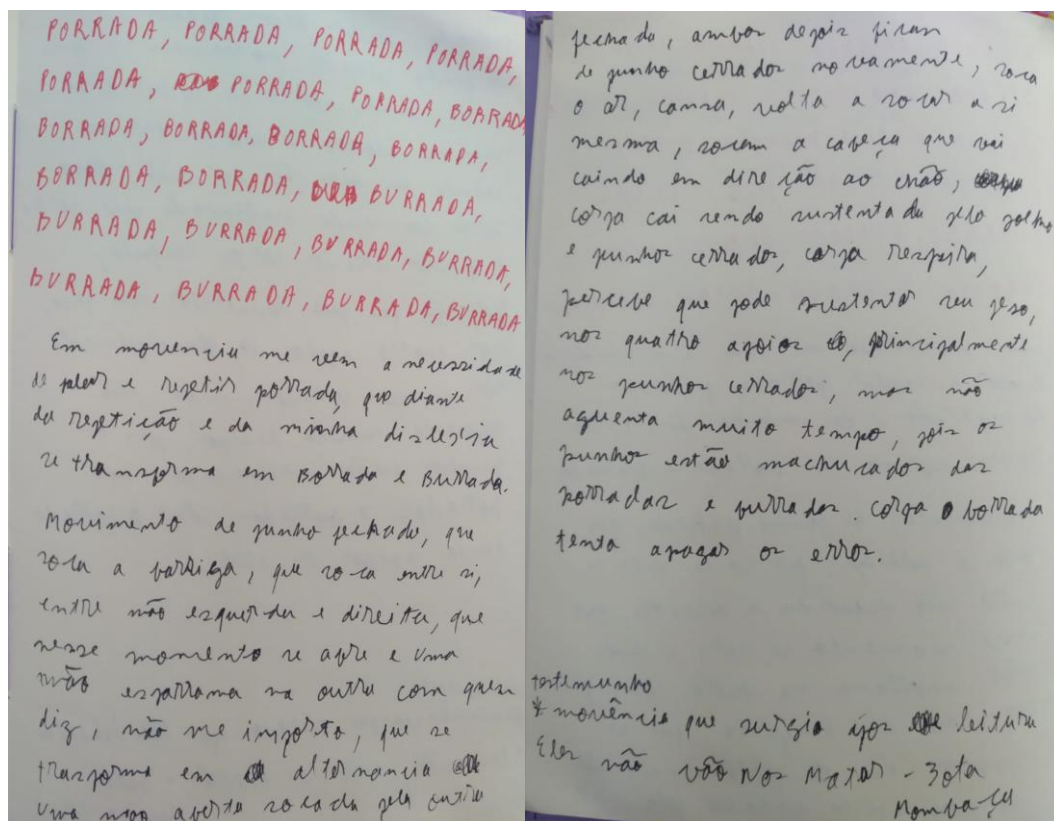 PORRADA, PORRADA, PORRADA, PORRADA,
PORRADA, PORRADA, PORRADA, BORRADA
BORRADA, BORRADA, BORRADA, BORRADA,
BORRADA, BORRADA, BURRADA,
BURRADA, BURRADA, BURRADA, BURRADA,
BURRADA, BURRADA, BURRADA, BURRADA
Em movencia me vem a necessidade
de falar e repetir porrada, que diante
da repetição e da minha dislexia
se transforma em Borrada e Burrada.
Movimento de punho fechado, que
soca a barriga, que soca entre si,
entre mão esquerda e direita, que
nesse momento se abre e uma
mão esparrama na outra com quem
diz, não me importo, que se
trasforma em alternancia
uma mão aberta socada pela outra
fechada, ambos depois ficam
de punho cerrados novamente, soca
o ar, cansa, volta a socar a si
mesma, socam a cabeça que vai
caindo em direção ao chão,
corpa cai sendo sustentada pelo joelho
e punhos cerrados, corpa respira,
percebe que pode sustentar seu peso,
nos quatro apoios, principalmente
nos punhos cerrados, mas não
aguenta muito tempo, pois os
punhos estão machucados das
porradas e burradas. corpa borrada
tenta apagar os erros.
testemunho
* movência que surgio após leitura
Eles não vão Nos Matar - Jota
Mombaça